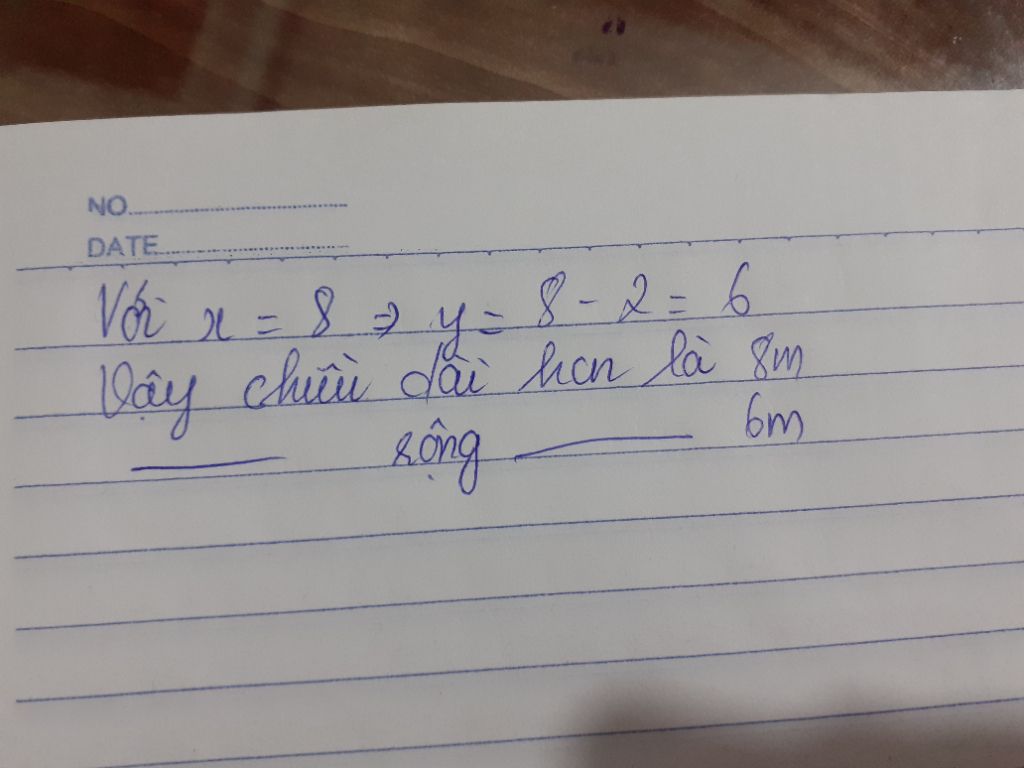 NO
DATE
Với x = 8 => y = 8 - 2 = 6
Vậy chiều dài hcn là 8m
rộng 6m